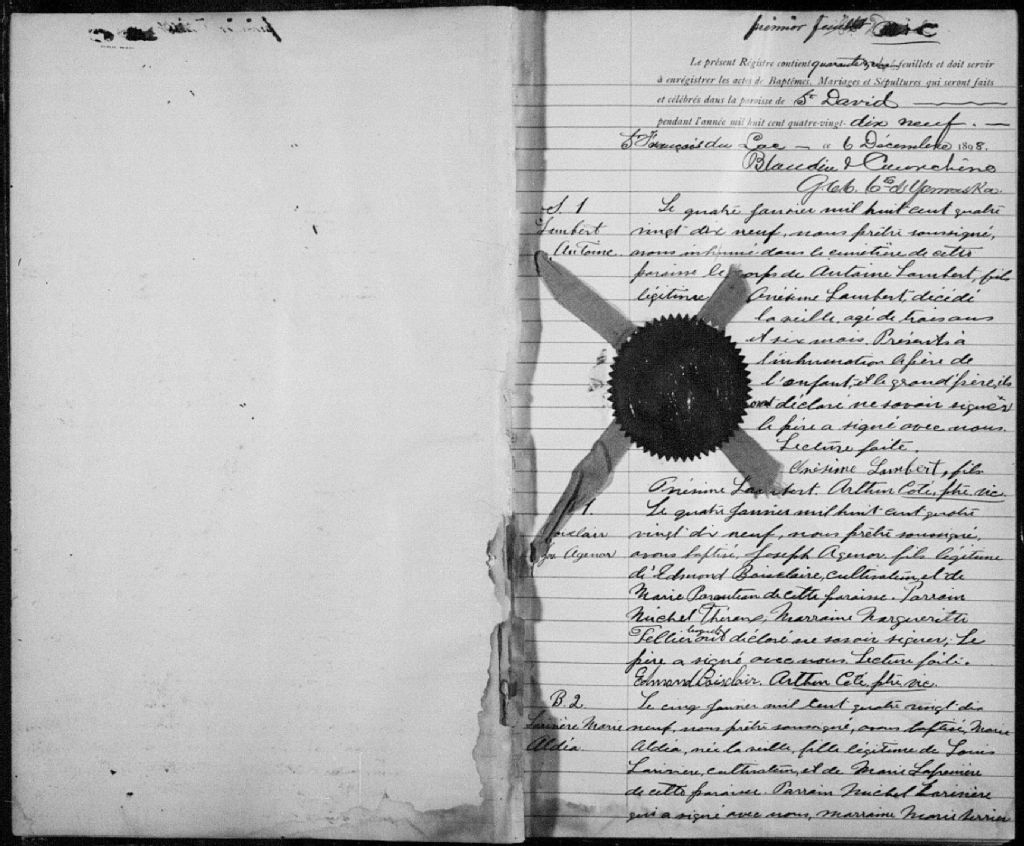 premier feuillet
Le présent Régistre contient quarante feuillets et doit servir
à enrégistrer les actes de Baptêmes, Mariages et Sépultures qui seront faits
et célébrés dans la paroisse de St David
pendant l'année mil huit cent quatre-vingt-dix neuf.
St François du Lac — ce 6 Décembre 1898.
Blondin &
G.C.S. Ce d'Yamaska
S. 1
Lambert
Antoine
Le quatre Janvier mil huit cent quatre
vingt dix neuf, nous prêtre soussigné,
avons inhumé dans le cimetière de cette
paroisse le corps de Antoine Lambert, fils
légitime Onésime Lambert, décédé
la veille, agé de trois ans
et six mois. Présents à
l'inhumation le père de
l'enfant, et le grand'père, ils
ont déclaré ne savoir signer
le père a signé avec nous.
Lecture faite
Onésime Lambert, fils
Onésime Lambert. Arthur Coté, ptre vic.
1.
Boisclair
Jos Agenor
Le quatre Janvier mil huit cent quatre
vingt dix neuf, nous prêtre soussigné,
avons baptisé, Joseph Agenor, fils légitime
d'Edmond Boisclaire, cultivateur, et de
Marie Parenteau de cette paroisse. Parrain
Michel Théroux, Marraine Margueritte
Tellier lesquels ont déclaré ne savoir signer, Le
père a signé avec nous. Lecture faite.
Edmond Boisclair. Arthur Coté, ptre vic.
B. 2
Larivière Marie
Aldéa
Le cinq Janvier mil cent quatre vingt dix
neuf, nous prêtre soussigné, avons baptisé, Marie
Aldéa, née la veille, fille légitime de Louis
Larivière, cultivateur, et de Marie Lafrenière
de cette paroisse. Parrain Michel Larivière
qui a signé avec nous, marraine Marie